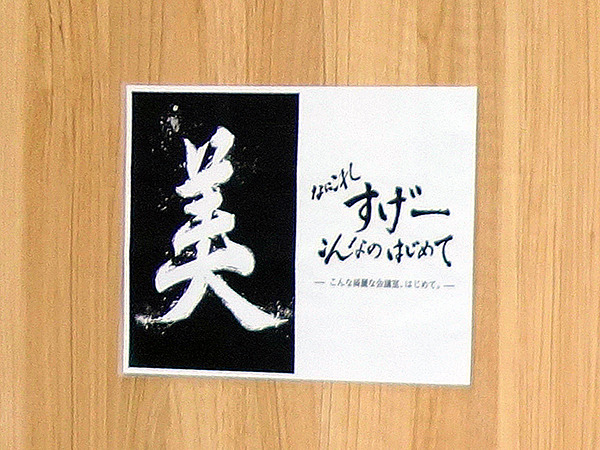 美
なにこれ
すげー
こんなのはじめて
― こんな綺麗な会議室、はじめて。―